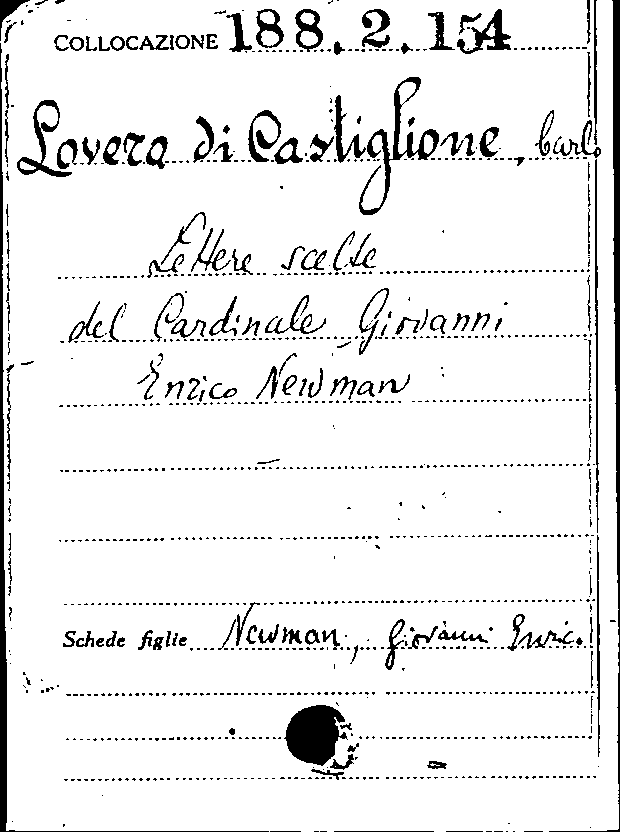 COLLOCAZIONE 188.2.154
Lovera di Castiglione, Carlo
Lettere scelte
del Cardinale Giovanni
Enrico Newman
Schede figlie Newman, Giovanni Enrico